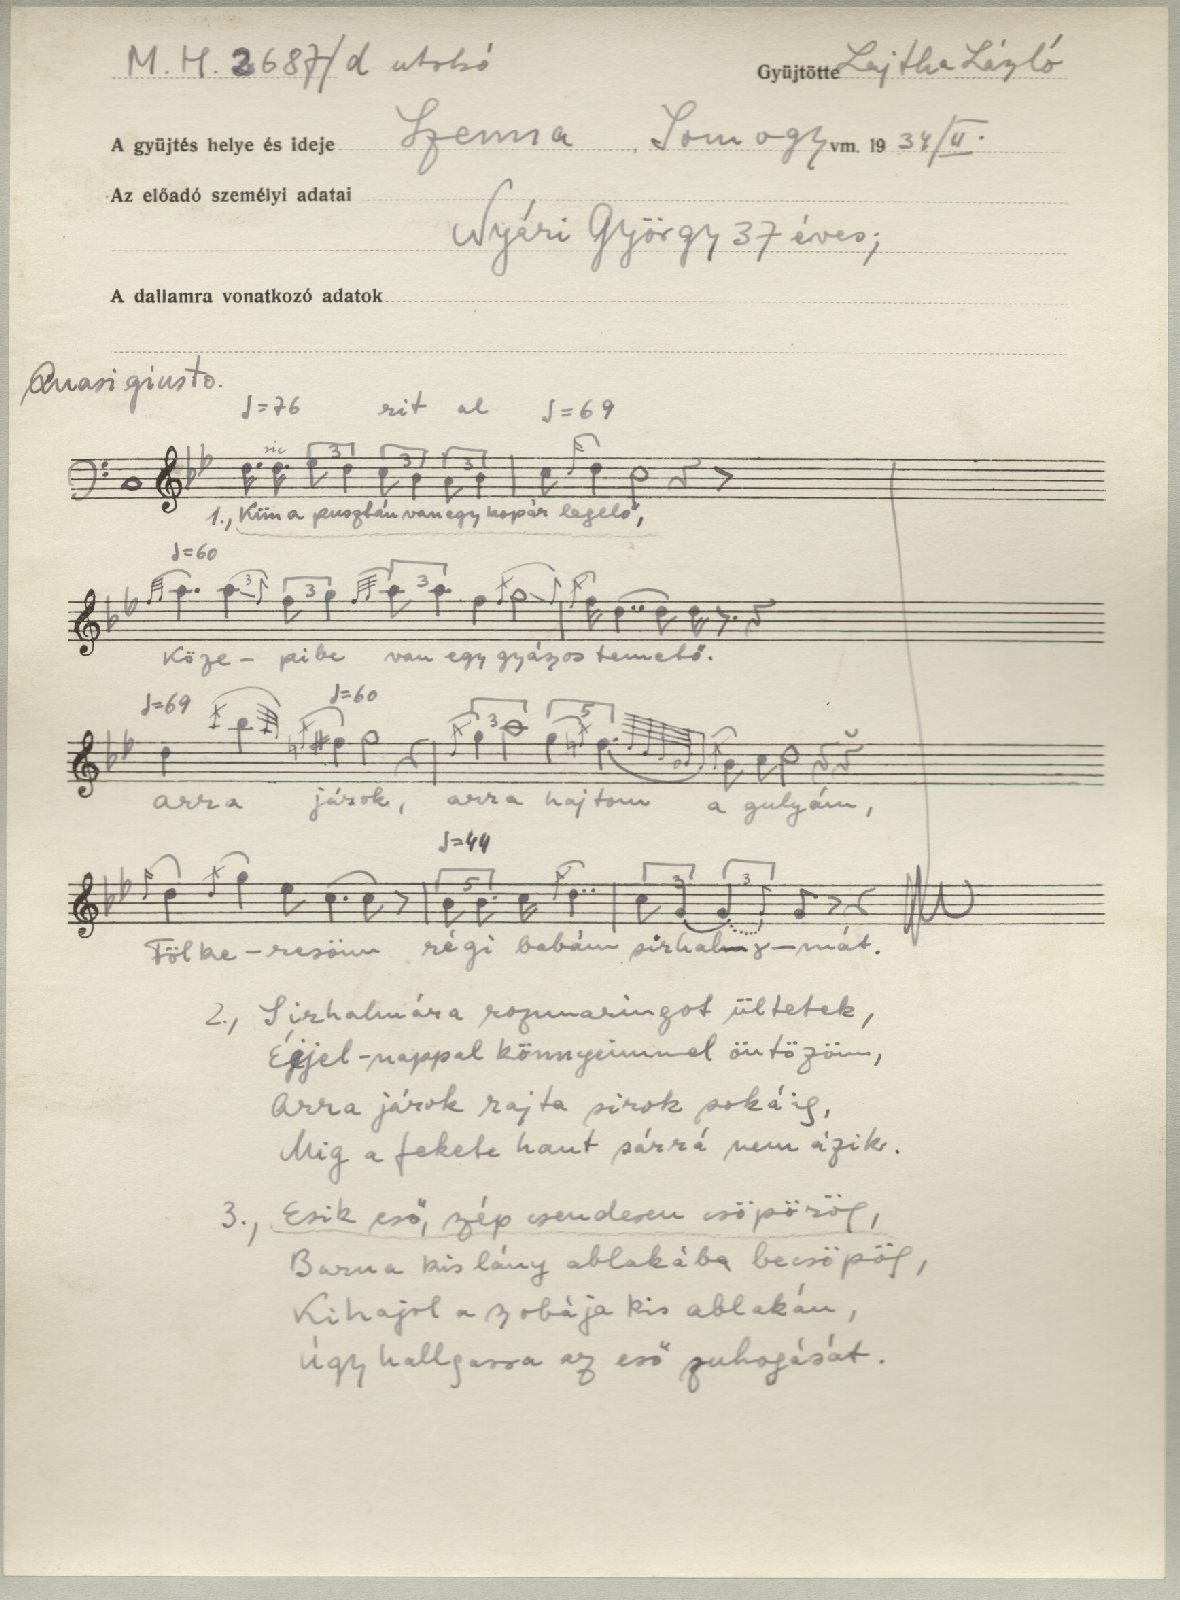 M. H. 2687/d utolsó
Gyüjtötte Lajtha László
A gyüjtés helye és ideje Szenna, Somogy vm. 1934/II.
Az előadó személyi adatai
Nyári György 37 éves;
A dallamra vonatkozó adatok
Quasi giusto.
♩=76 rit al ♩=69
sic
3 3 3
1., Kiin a pusztán van egy kopár legelő,
♩=60
3 3 3
Köze- pibe van egy gyászos temető.
♩=69 ♩=60
3 5
arra járok, arra hajtom a gulyám,
♩=44
5 3 3
Fölke-resöim régi babám sirhal-mát.
2., Sirhalmára rozmaringot ültetek,
Éjjel-nappal könnyeimmel öntözöm,
Arra járok rajta sirok sokáig,
Mig a fekete hant sárrá nem ázik.
3., Esik eső, szép csendesen csöpörög,
Barna kislány ablakába becsöpög,
Kihajol a szobája kis ablakán,
Úgy hallgassa az eső zuhogását.